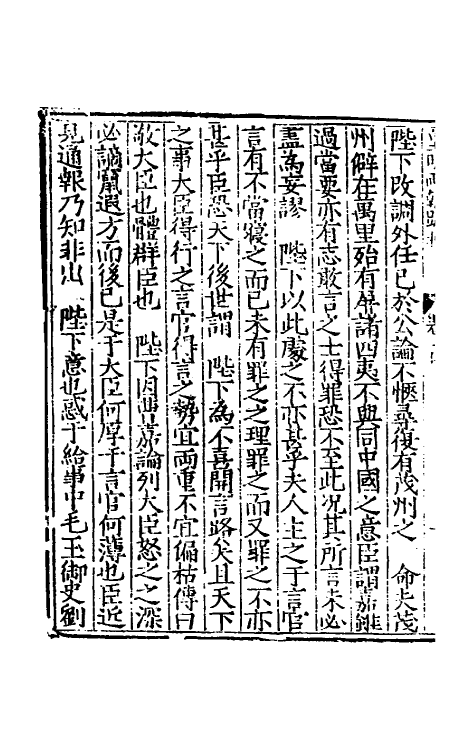 陛下改調外任已於公論不愜尋復有茂州之　命夫茂
州僻在萬里殆有屏諸四夷不與同中國之意臣謂嘉雖
過當要亦有志敢言之士得罪恐不至此况其所言未必
盡為妄謬　陛下以此處之不亦甚乎夫人主之于言官
言有不當寢之而已未有罪之之理罪之而又罪之不亦
甚乎臣恐天下後世謂　陛下為不喜開言路矣且天下
之事大臣得行之言官得言之勢宜両重不宜偏枯傳曰
敬大臣也體群臣也　陛下因曹嘉論列大臣怒之之深
必謫竄遐方而後已是于大臣何厚于言官何薄也臣近
見通報乃知非出　陛下意也惑于給事中毛玉御史劉